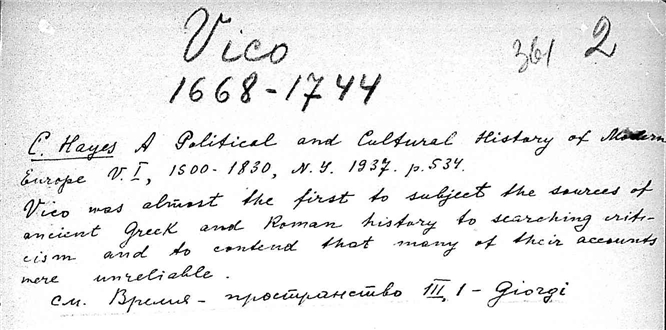 Vico
361 2
1668-1744
C. Hayes A Political and Cultural History of Modern
Europe V. I, 1500-1830, N.Y. 1937. p. 534.
Vico was almost the first to subject the sources of
ancient Greek and Roman history to searching criti-
cism and to contend that many of their accounts
were unreliable.
см. Время - пространство III, 1 - Giorgi